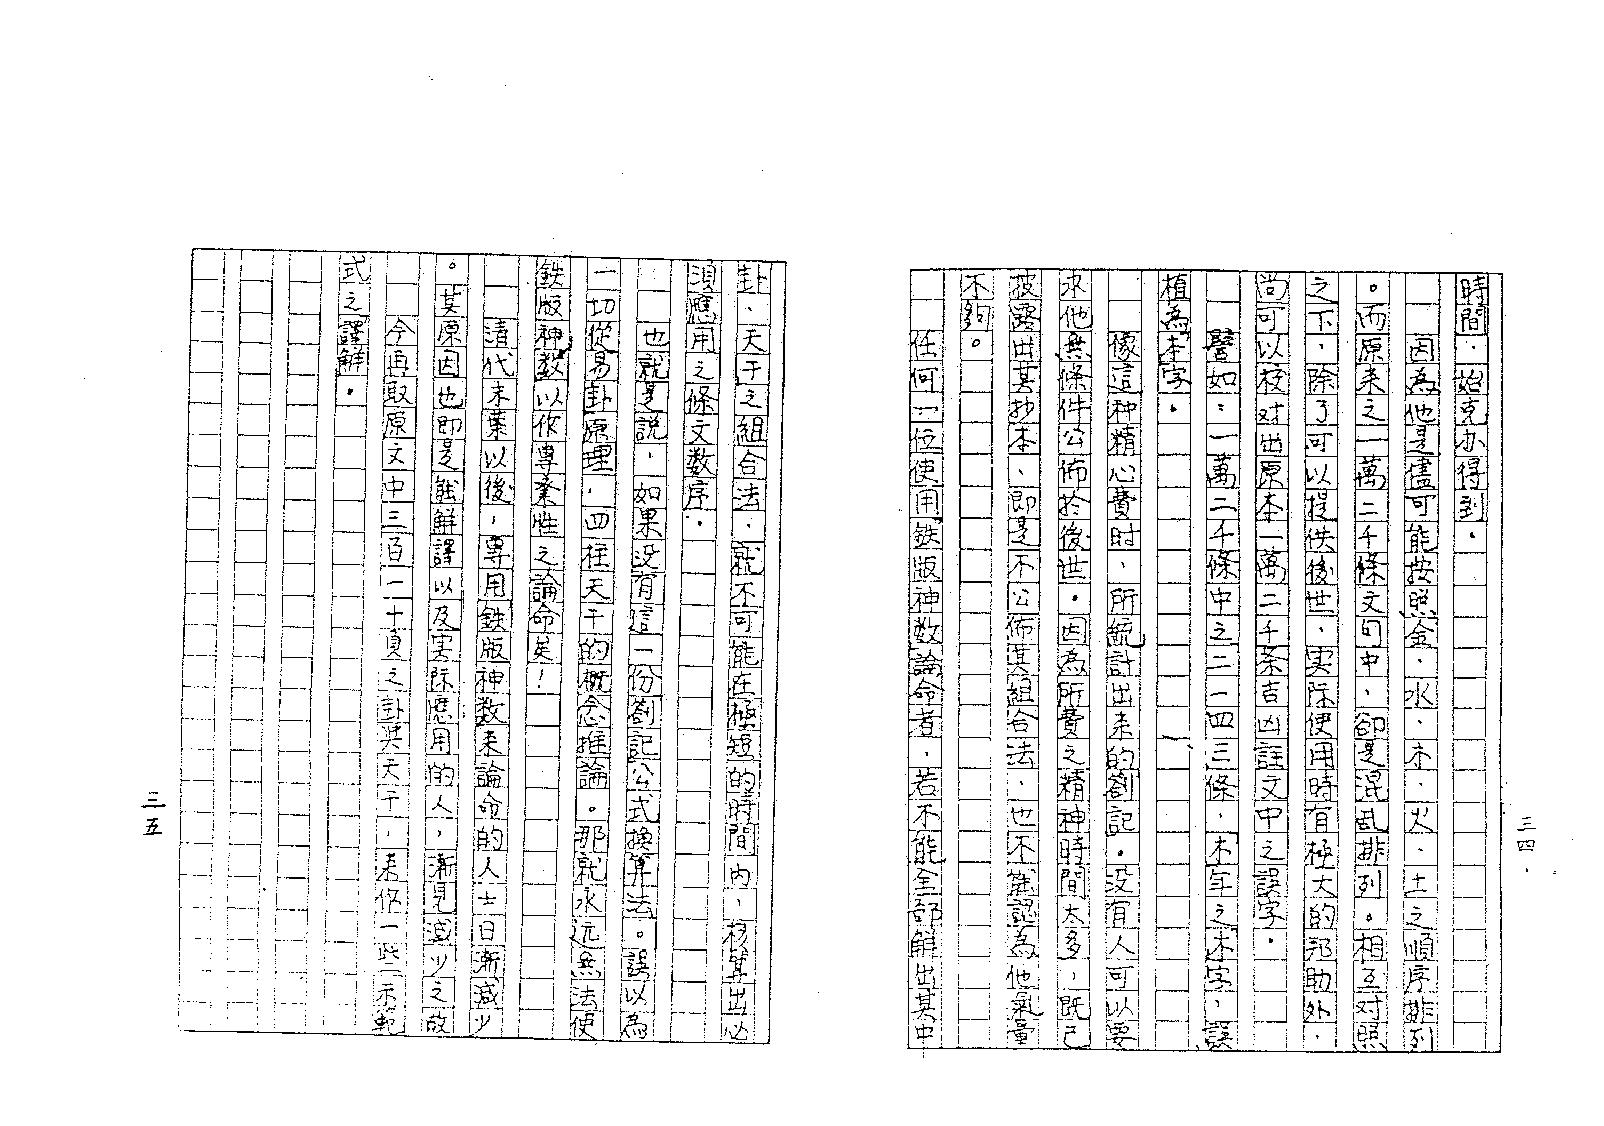 時間，始克办得到。
因為他是儘可能按照金、水、木、火、土之順序排列
。而原来之一萬二千條文句中，卻是混乱排列。相互对照
之下，除了可以提供後世，实际使用時有極大的邦助外，
尚可以校对出原本一萬二千条吉凶註文中之誤字。
譬如：一萬二千條中之二一四三條，木年之木字，誤
植為本字。
像這种精心費时，所統計出来的劄記。没有人可以要
求他無條件公佈於後世。因為所費之精神時間太多，既已
披露出其抄本，即是不公佈其組合法，也不能認為他氣量
不夠。
任何一位使用鉄版神数論命者，若不能全部解出其中
三四
卦、天干之組合法，就不可能在極短的時間內，核算出必
須應用之條文数序。
也就是説，如果没有這一份劄記公式換算法。誤以為
一切從易卦原理，四柱天干的概念推論。那就永远無法使
鉄版神数以作專業性之論命矣！
清代末葉以後，專用鉄版神数来論命的人士日漸減少
。其原因也即是能解譯以及实际應用的人，漸見減少之故
今再取原文中三百二十頁之卦與天干，来作一些示範
式之譯解。
三五